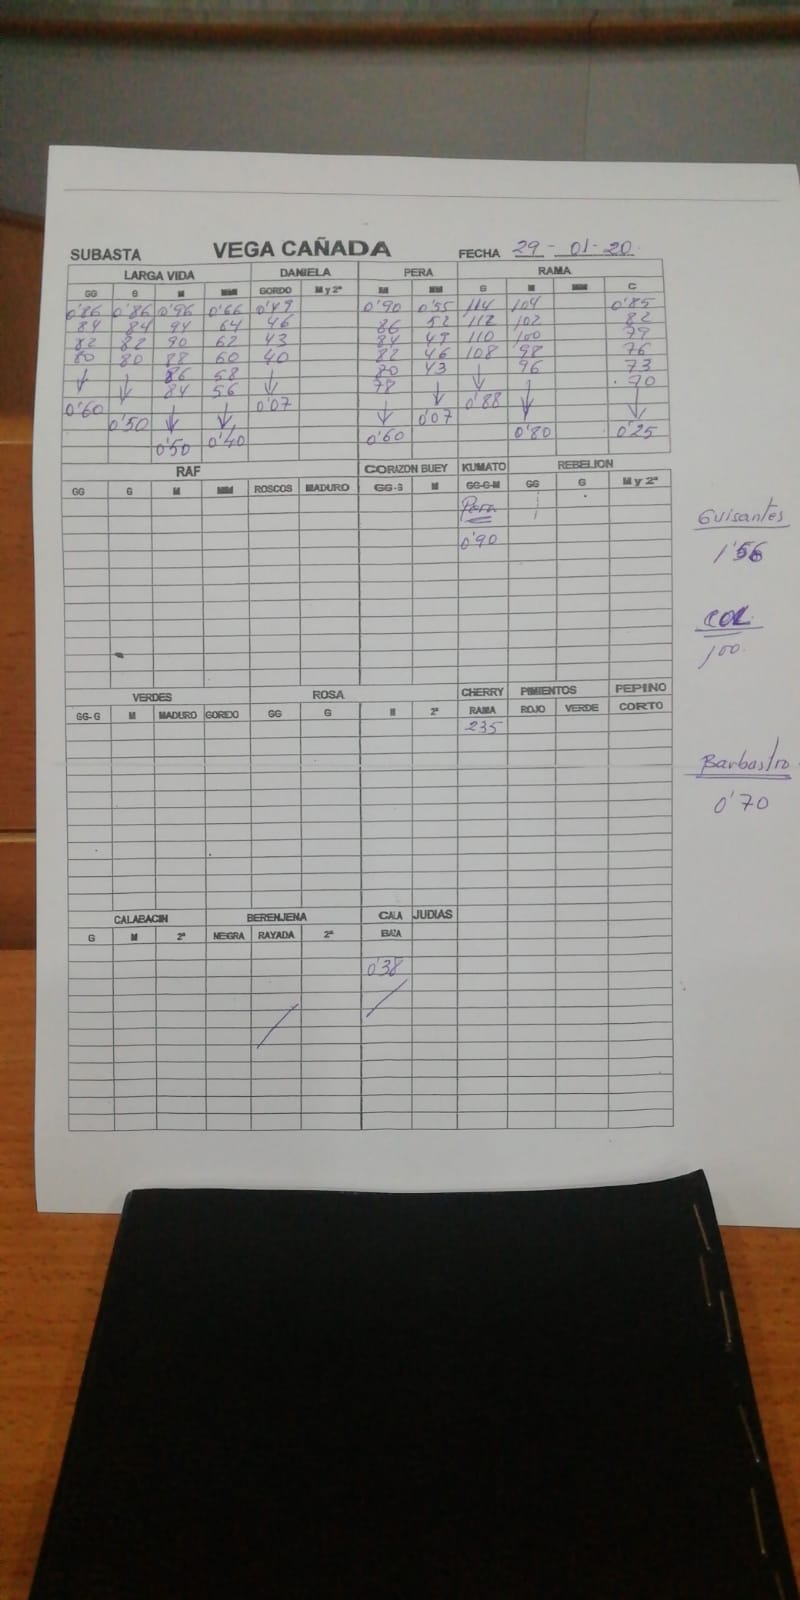 SUBASTA VEGA CAÑADA FECHA 29-01-20
LARGA VIDA DANIELA PERA RAMA
GG G M MM GORDO M y 2ª M MM G M MM C
0'86 0'86 0'96 0'66 0'49 0'90 0'55 114 104 0'85
84 84 94 64 46 86 52 112 102 82
82 82 90 62 43 84 49 110 100 79
80 80 88 60 40 82 46 108 98 76
86 58 80 43 96 73
84 56 78 70
0'60 0'07 0'88
0'50 0'07
0'50 0'40 0'60 0'80 0'25
RAF CORAZON BUEY KUMATO REBELION
GG G M MM ROSCOS MADURO GG-G M GG-G-M GG G M y 2ª
Pera
0'90
Guisantes
1'56
COL
100
VERDES ROSA CHERRY PIMIENTOS PEPINO
GG-G M MADURO GORDO GG G M 2ª RAMA ROJO VERDE CORTO
235
Barbastro
0'70
CALABACIN BERENJENA CALA JUDIAS
G M 2ª NEGRA RAYADA 2ª
0'38